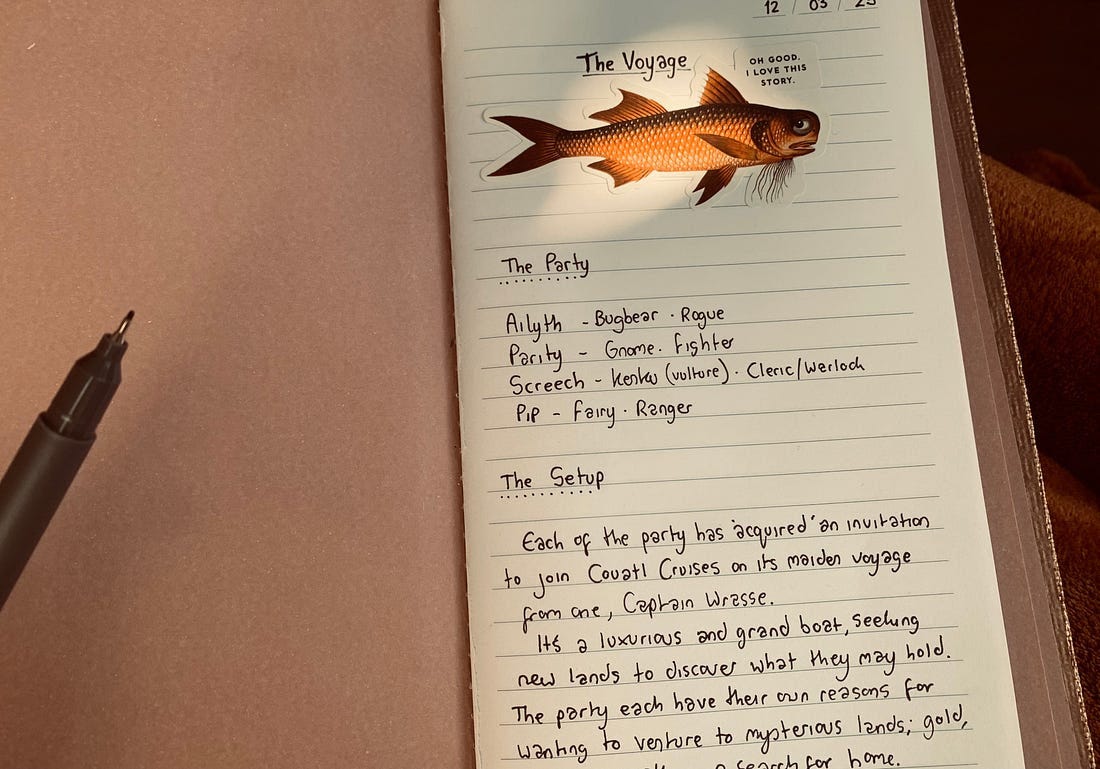 12 / 03 / 25
The Voyage
OH GOOD.
I LOVE THIS
STORY.
The Party
Ailyth - Bugbear · Rogue
Parity - Gnome. Fighter
Screech - Kenku (vulture) · Cleric/Warlock
Pip - Fairy · Ranger
The Setup
Each of the party has 'acquired' an invitation
to join Couatl Cruises on its maiden voyage
from one, Captain Wrasse.
It's a luxurious and grand boat, seeking
new lands to discover what they may hold.
The party each have their own reasons for
wanting to venture to mysterious lands; gold,
search for home.